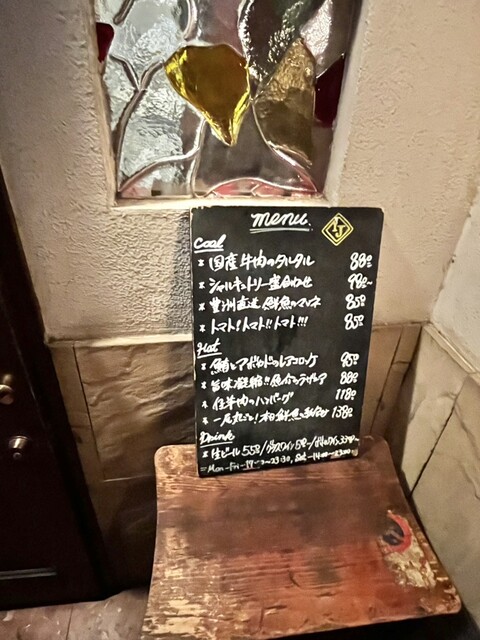 menu.
IJ
Cool
* 国産牛肉のタルタル 880
* シャルキュトリー盛合わせ 980~
* 豊洲直送 鮮魚のマリネ 850
* トマト!トマト!!トマト!!!
Hot
* 鯖とアボカドのレアコロッケ 950
* 旨味凝縮!! 880
* 牛肉のハンバーグ 1180
* 一尾丸ごと! 本日鮮魚 1380
Drink
* 生ビール 558/グラスワイン
Mon-Fri-17:-23:30, Sat-14:00-23:00